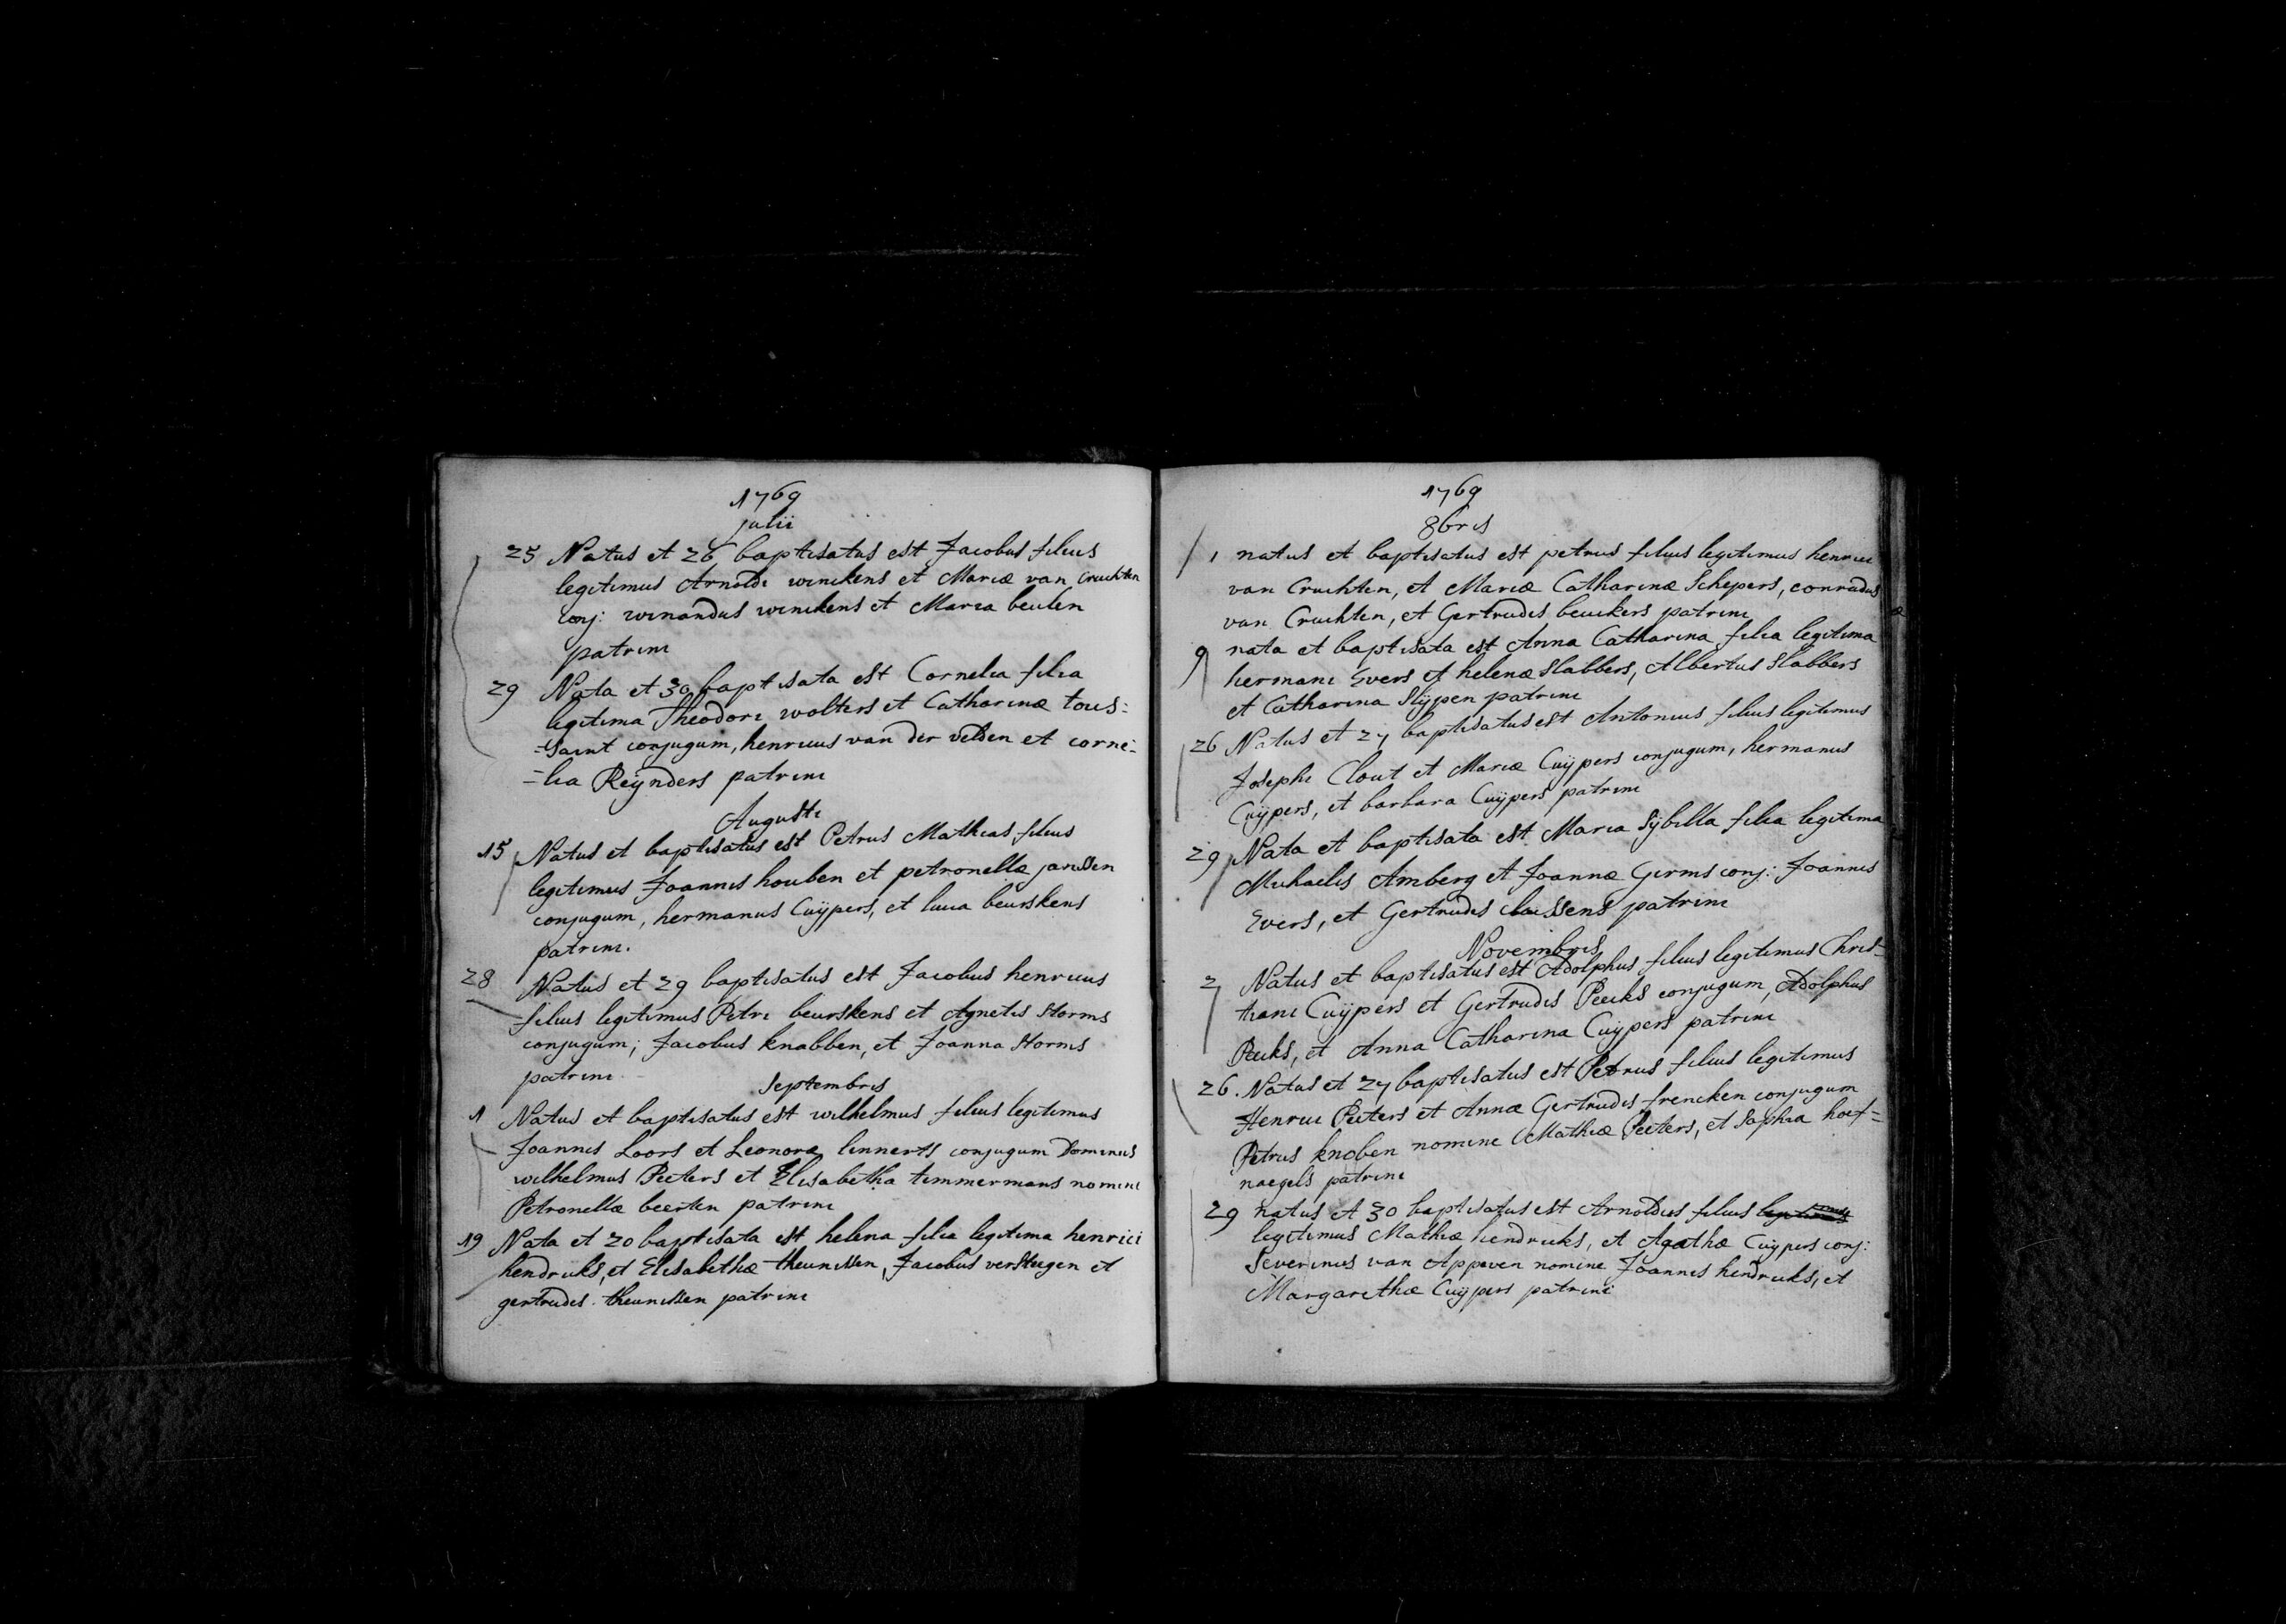 1769
julii
25 Natus et 26 baptisatus est Jacobus filius
legitimus Arnoldi winckens et Mariæ van Cruchten
conj: winandus winckens et Maria beulen
patrini
29 Nata et 30 baptisata est Cornelia filia
legitima Theodori wolters et Catharinæ tous=
=saint conjugum, henricus van der velden et corne=
=lia Reÿnders patrini
Augusti
15 Natus et baptisatus est Petrus Mathias filius
legitimus Joannis houben et petronellæ janssen
conjugum, hermanus Cuÿpers, et lucia beurskens
patrini.
28 Natus et 29 baptisatus est Jacobus henricus
filius legitimus Petri beurskens et Agnetis Storms
conjugum; Jacobus knabben, et Joanna Storms
patrini
Septembris
1 Natus et baptisatus est wilhelmus filius legitimus
Joannis Loors et Leonoræ linnerts conjugum Dominus
wilhelmus Peeters et Elisabetha timmermans nomine
Petronellæ beerten patrini
19 Nata et 20 baptisata est helena filia legitima henrici
hendricks, et Elisabethæ theunissen, Jacobus versteegen et
gertrudis theunissen patrini
1769
8bris
1 natus et baptisatus est petrus filius legitimus henrici
van Cruchten, et Mariæ Catharinæ Schepers, conradus
van Cruchten, et Gertrudis beuckers patrini
9 nata et baptisata est Anna Catharina filia legitima
hermani Evers et helenæ Slabbers, Albertus Slabbers
et Catharina Slÿpen patrini
26 Natus et 27 baptisatus est Antonius filius legitimus
Josephi Clout et Mariæ Cuÿpers conjugum, hermanus
Cuÿpers, et barbara Cuÿpers patrini
29 Nata et baptisata est Maria Sÿbilla filia legitima
Michaelis Amberg et Joannæ Germs conj: Joannes
Evers, et Gertrudis claessens patrini
Novembris
2 Natus et baptisatus est Adolphus filius legitimus Chris-
tiani Cuÿpers et Gertrudis Peeks conjugum, Adolphus
Peeks, et Anna Catharina Cuÿpers patrini
26. Natus et 27 baptisatus est Petrus filius legitimus
Henrici Peeters et Annæ Gertrudis frencken conjugum
Petrus knoben nomine Mathiæ Peeters, et Sophia hoef=
naegels patrini
29 natus et 30 baptisatus est Arnoldus filius legitimus
legitimus Mathiæ hendricks, et Agathæ Cuÿpers conj:
Severinus van Appeven nomine Joannis hendricks, et
Margarethæ Cuÿpers patrini